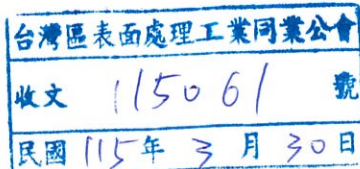 台灣區表面處理工業同業公會
收文 115061 號
民國 115年 3 月 30日